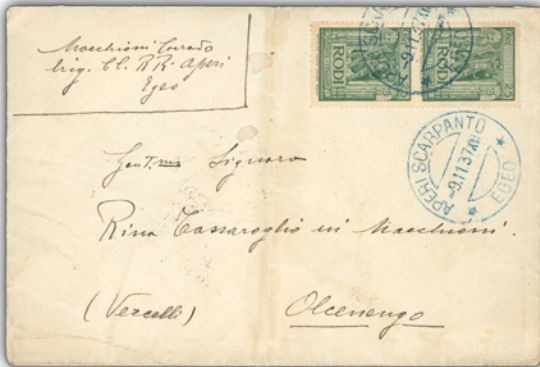 Macchioni Corrado
brig. CC. RR. Aperi
Egeo
RODI
RODI
25
9.11.37.XVI
EGEO
APERI SCARPANTO
-9.11.37.XVI
EGEO
Gent.ma Signora
Rina Tassaroglio in Macchioni.
(Vercelli) Olcenengo